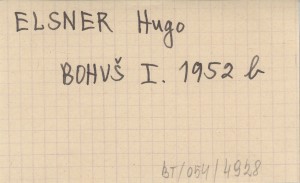 ELSNER Hugo
BOHUŠ I. 1952 b
BT/054/4928